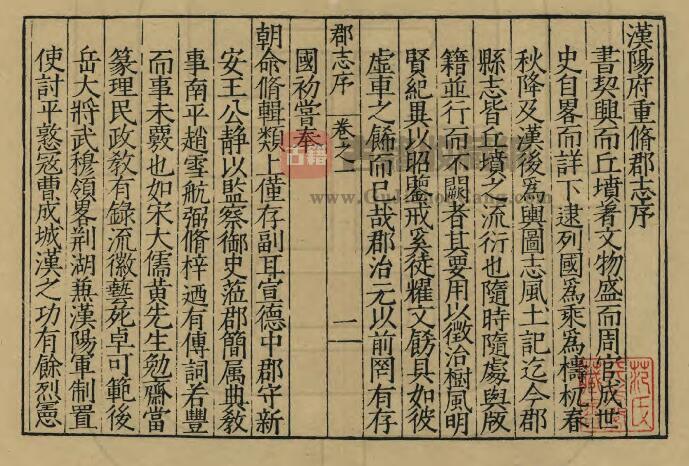 漢陽府重脩郡志序
書契興而丘墳著文物盛而周官成世
史自畧而詳下逮列國爲乘爲檮杌春
秋降及漢後爲輿圖志風土記迄今郡
縣志皆丘墳之流衍也隨時隨處與版
籍並行而不闕者其要用以徵治樹風明
賢紀異以昭鑒戒奚徒耀文餙具如彼
虛車之餙而已哉郡治元以前罔有存
郡志序 卷之一 二
國初嘗奉
朝命脩輯類上僅存副耳宣德中郡守新
安王公靜以監察御史蒞郡簡属典敎
事南平趙雪航弼脩梓迺有傳詞若豐
而事未覈也如宋大儒黃先生勉齋當
篆理民政敎有錄流徽藝苑卓可範後
岳大將武穆領畧荆湖兼漢陽軍制置
使討平憝宼曹成城漢之功有餘烈憲
古籍
范氏